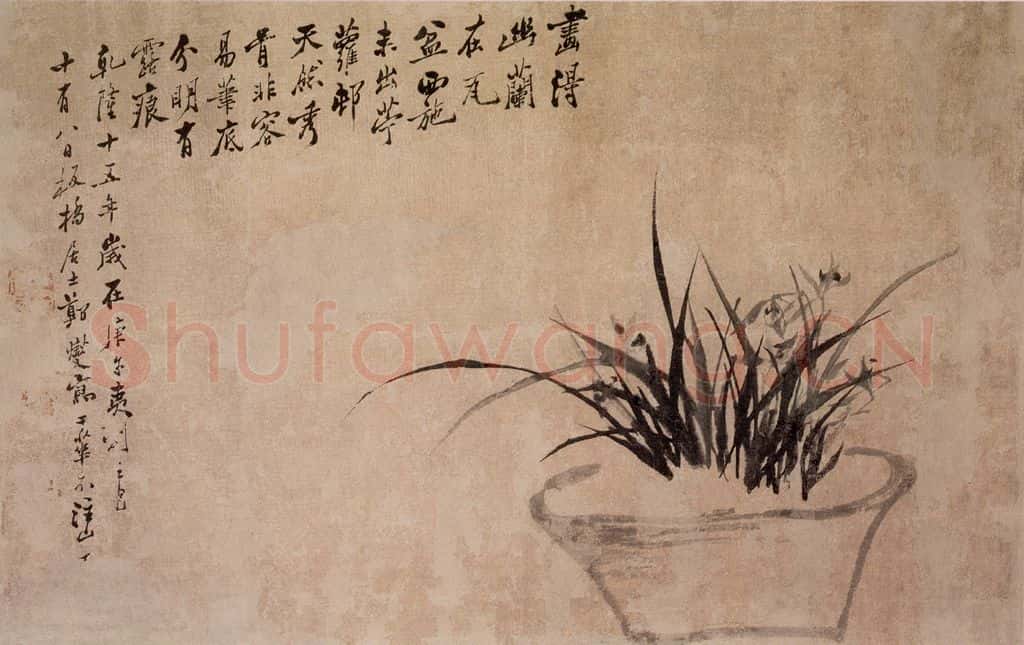 畫得
幽蘭
在瓦
盆西施
未出苧
蘿邨
天然秀
骨非容
易筆底
分明有
露痕
乾隆十五年歲在庚午夷則之
十有八日板橋居士鄭燮寫
Shufawang.CN